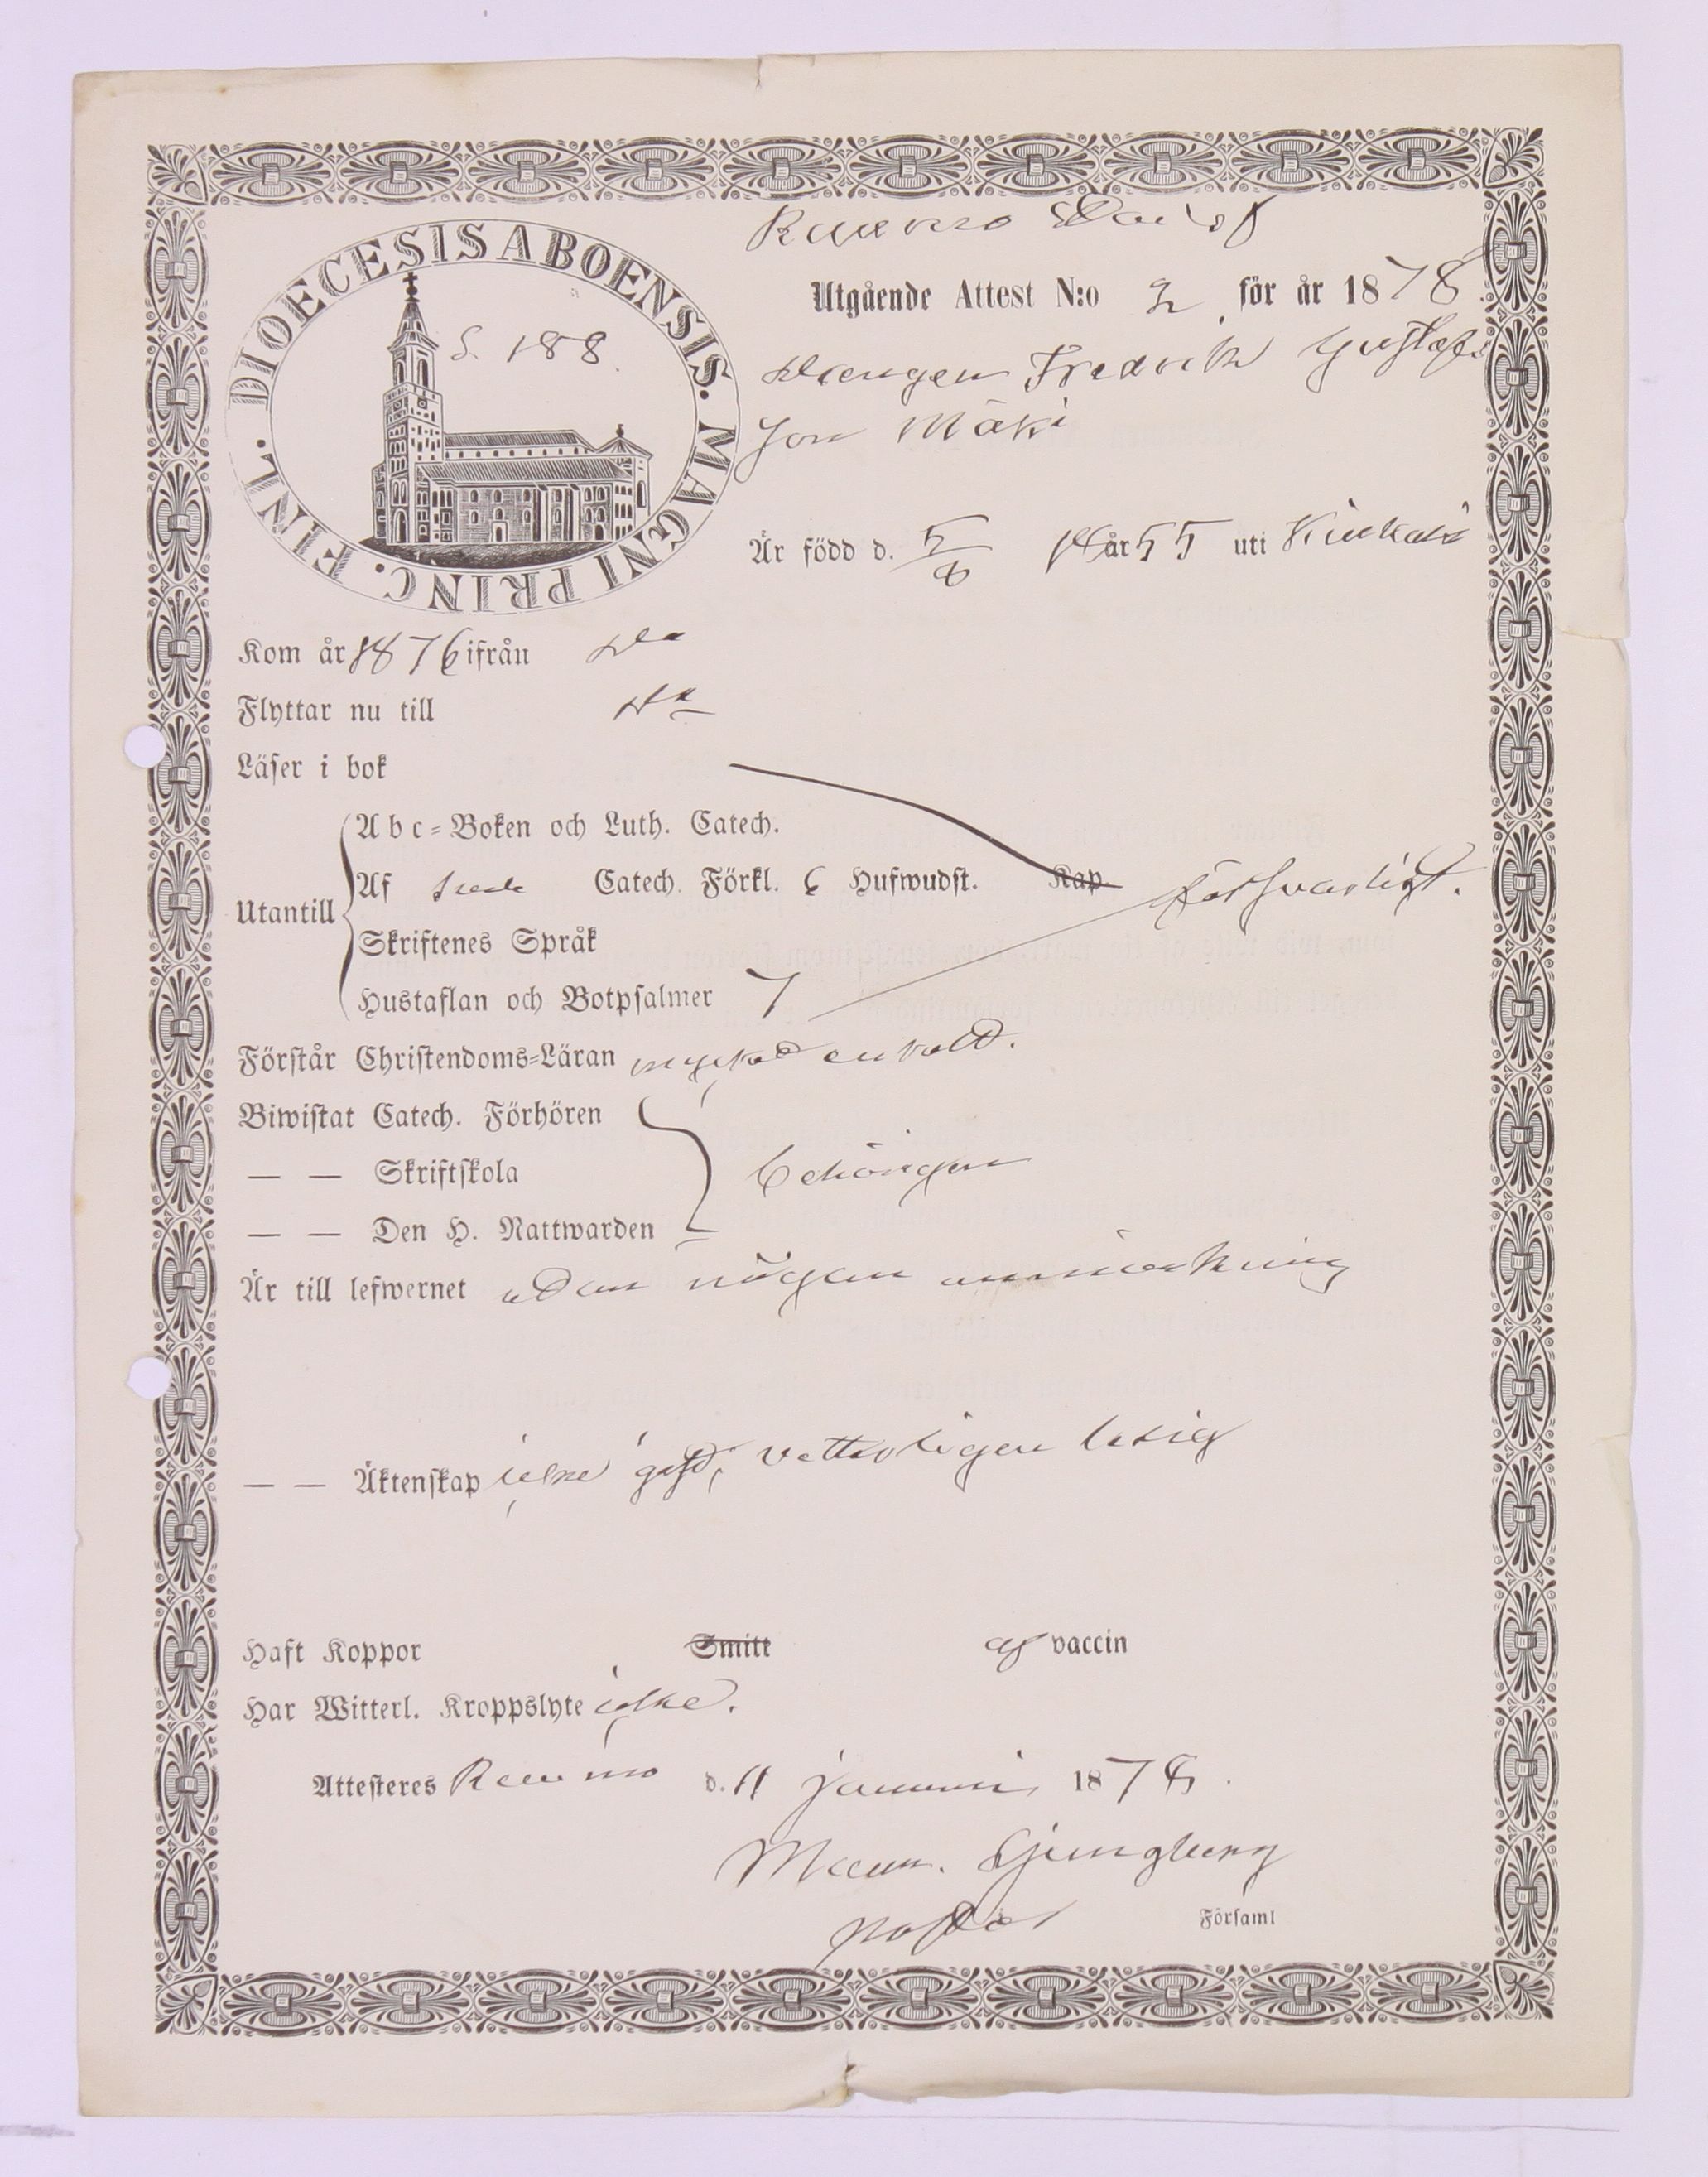 DIOECESIS ABOENSIS. MAGNI PRINC. FINL.
S. 188.
Utgående Attest N:o 2 för år 1878.
Drengen Fredrik Gustafs
Son Mäki
Är född d. 5/8 18 år 55 uti Kiukais
Kom år 1876 ifrån Do
Flyttar nu till Do
Läser i bok
Utantill
Abc-Boken och Luth. Catech.
Af Catech. Förkl. 6 Hufwudst. Kap. försvarligt.
Skriftenes Språk
Hustaflan och Botpsalmer 7
Förstår Christendoms-Läran enkelt.
Biwistat Catech. Förhören
— — Skriftskola behörigen
— — Den H. Nattwarden
Är till lefwernet utan någon anmärkning
— — Äktenskap icke gift, vetterligen ledig
Haft Koppor Smitt af vaccin
Har Witterl. Kroppslyte icke.
Attesteres Raumo d. 11 januari 1878.
Ljungberg
pastor Församl